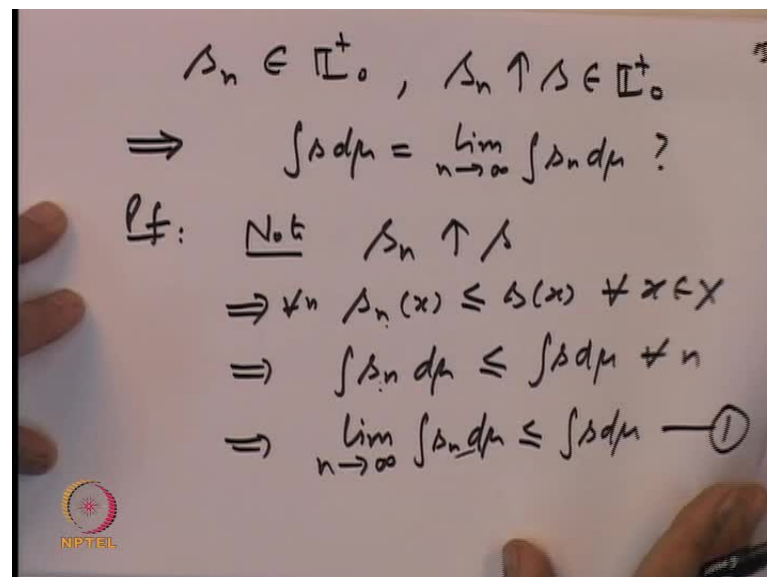 s_n ∈ 𝕃⁺₀ , s_n ↑ s ∈ 𝕃⁺₀
⟹ ∫ s dμ = lim_{n→∞} ∫ s_n dμ ?
Pf: Note s_n ↑ s
⟹ ∀ n s_n(x) ≤ s(x) ∀ x ∈ X
⟹ ∫ s_n dμ ≤ ∫ s dμ ∀ n
⟹ lim_{n→∞} ∫ s_n dμ ≤ ∫ s dμ —①
NPTEL